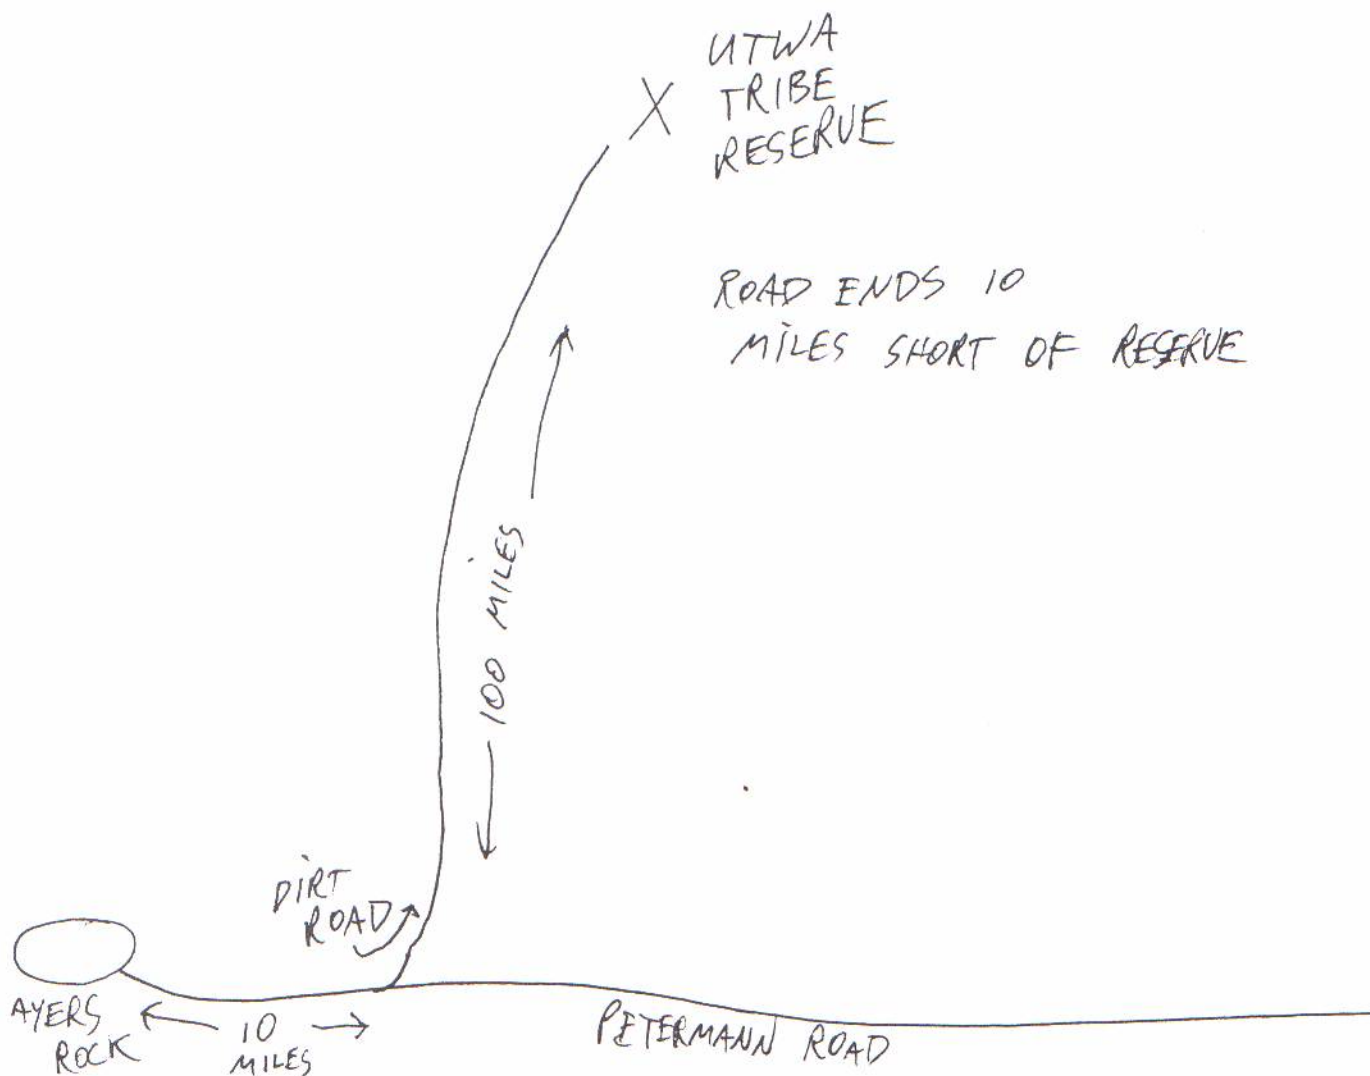 UTWA
TRIBE
RESERVE
ROAD ENDS 10
MILES SHORT OF RESERVE
100 MILES
DIRT
ROAD
AYERS
ROCK
10
MILES
PETERMANN ROAD